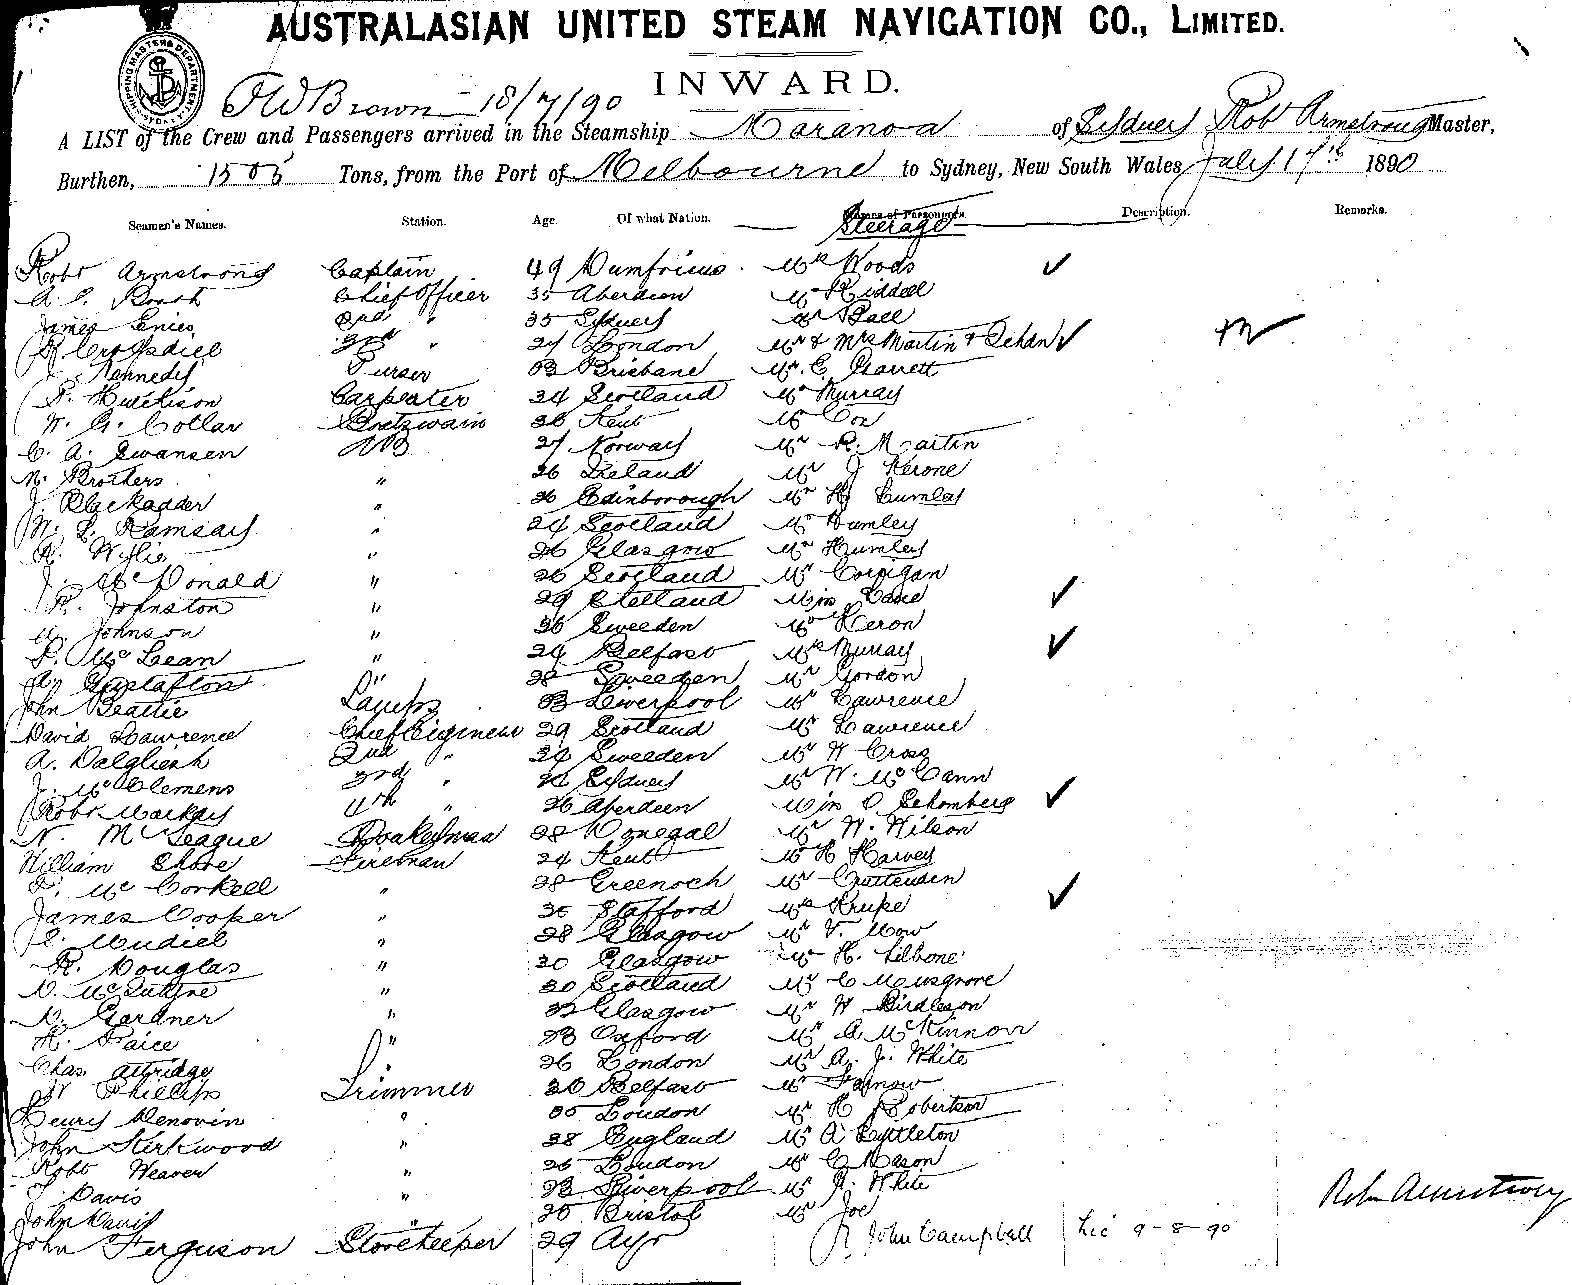 AUSTRALASIAN UNITED STEAM NAVIGATION CO., LIMITED.
INWARD.
SHIPPING MASTERS DEPARTMENT SYDNEY
Brown 18/7/90
A LIST of the Crew and Passengers arrived in the Steamship Maranoa of Sydney Rob Armstrong Master,
Burthen, 1505 Tons, from the Port of Melbourne to Sydney, New South Wales, July 17th 1890
Seamen's Names. Station. Age. Of what Nation. Names of Passengers. Description. Remarks.
Steerage
Robt Armstrong Captain 49 Dumfries Mrs Woods
A. Chief Officer 35 Aberdeen Mr Riddell
James 2nd " 35 Sydney Mr Ball
3rd " 27 London Mr & Mrs Martin &
Kennedy Purser 33 Brisbane Mr. E. Garrett
Hutchison Carpenter 34 Scotland Mr Murray
W. G. Collar Boatswain 36 Kent Mr Cox
C. A. Swansen AB 27 Norway Mr R. Martin
Brothers " 26 Ireland Mr J Kerone
J. Blackadder " Edinborough Mr Lumley
W. L. Ramsay " 24 Scotland Mr Humley
R. Wylie " 26 Glasgow Mr Humley
J. McDonald " 26 Scotland Mr Corrigan
R. Johnston " 29 Shetland Miss
Johnson " 36 Sweeden Mr Heron
P. McLean " 24 Belfast Mrs Murray
A. Gustafson " 28 Sweeden Mr Gordon
John Beattie Lamps 33 Liverpool Mr Lawrence
David Lawrence Chief Eigineer 39 Scotland Mr Lawrence
A. Dalgliesh 2nd " 34 Sweeden Mr W Cross
J. McClemens 3rd " Sydney Mr W. McCann
Robt Mackay 4th " 26 Aberdeen Miss O. Schomberg
N. McTeague 28 Donegal Mr W. Wilson
William Shore Fireman 24 Kent Mr H Harvey
McCorkell " 28 Greenoch Mr Cruttenden
James Cooper " 30 Stafford Mrs Krupe
Mudiel " 28 Glasgow Mr V. Mow
R. Douglas " 30 Glasgow Mr H. Lilbone
McIntyre " 30 Scotland Mr C Musgrove
Gardner " 33 Glasgow Mr W Birdleson
H. Faice " 33 Oxford Mr A McKinnon
Chas Attridge " 26 London Mr A. J. White
W Phillips Trimmer 30 Belfast Mr
Henry Menovin " London Mr H Robertson
John Kerkwood " 38 England Mr A Lyttleton
Robt Weaver " 26 London Mr C Mason
Davis " Liverpool Mr White
John Davis " Bristol Mr Joe
John Ferguson Storekeeper 29 Ayr John Campbell Lic 9-8-90
Robt Armstrong